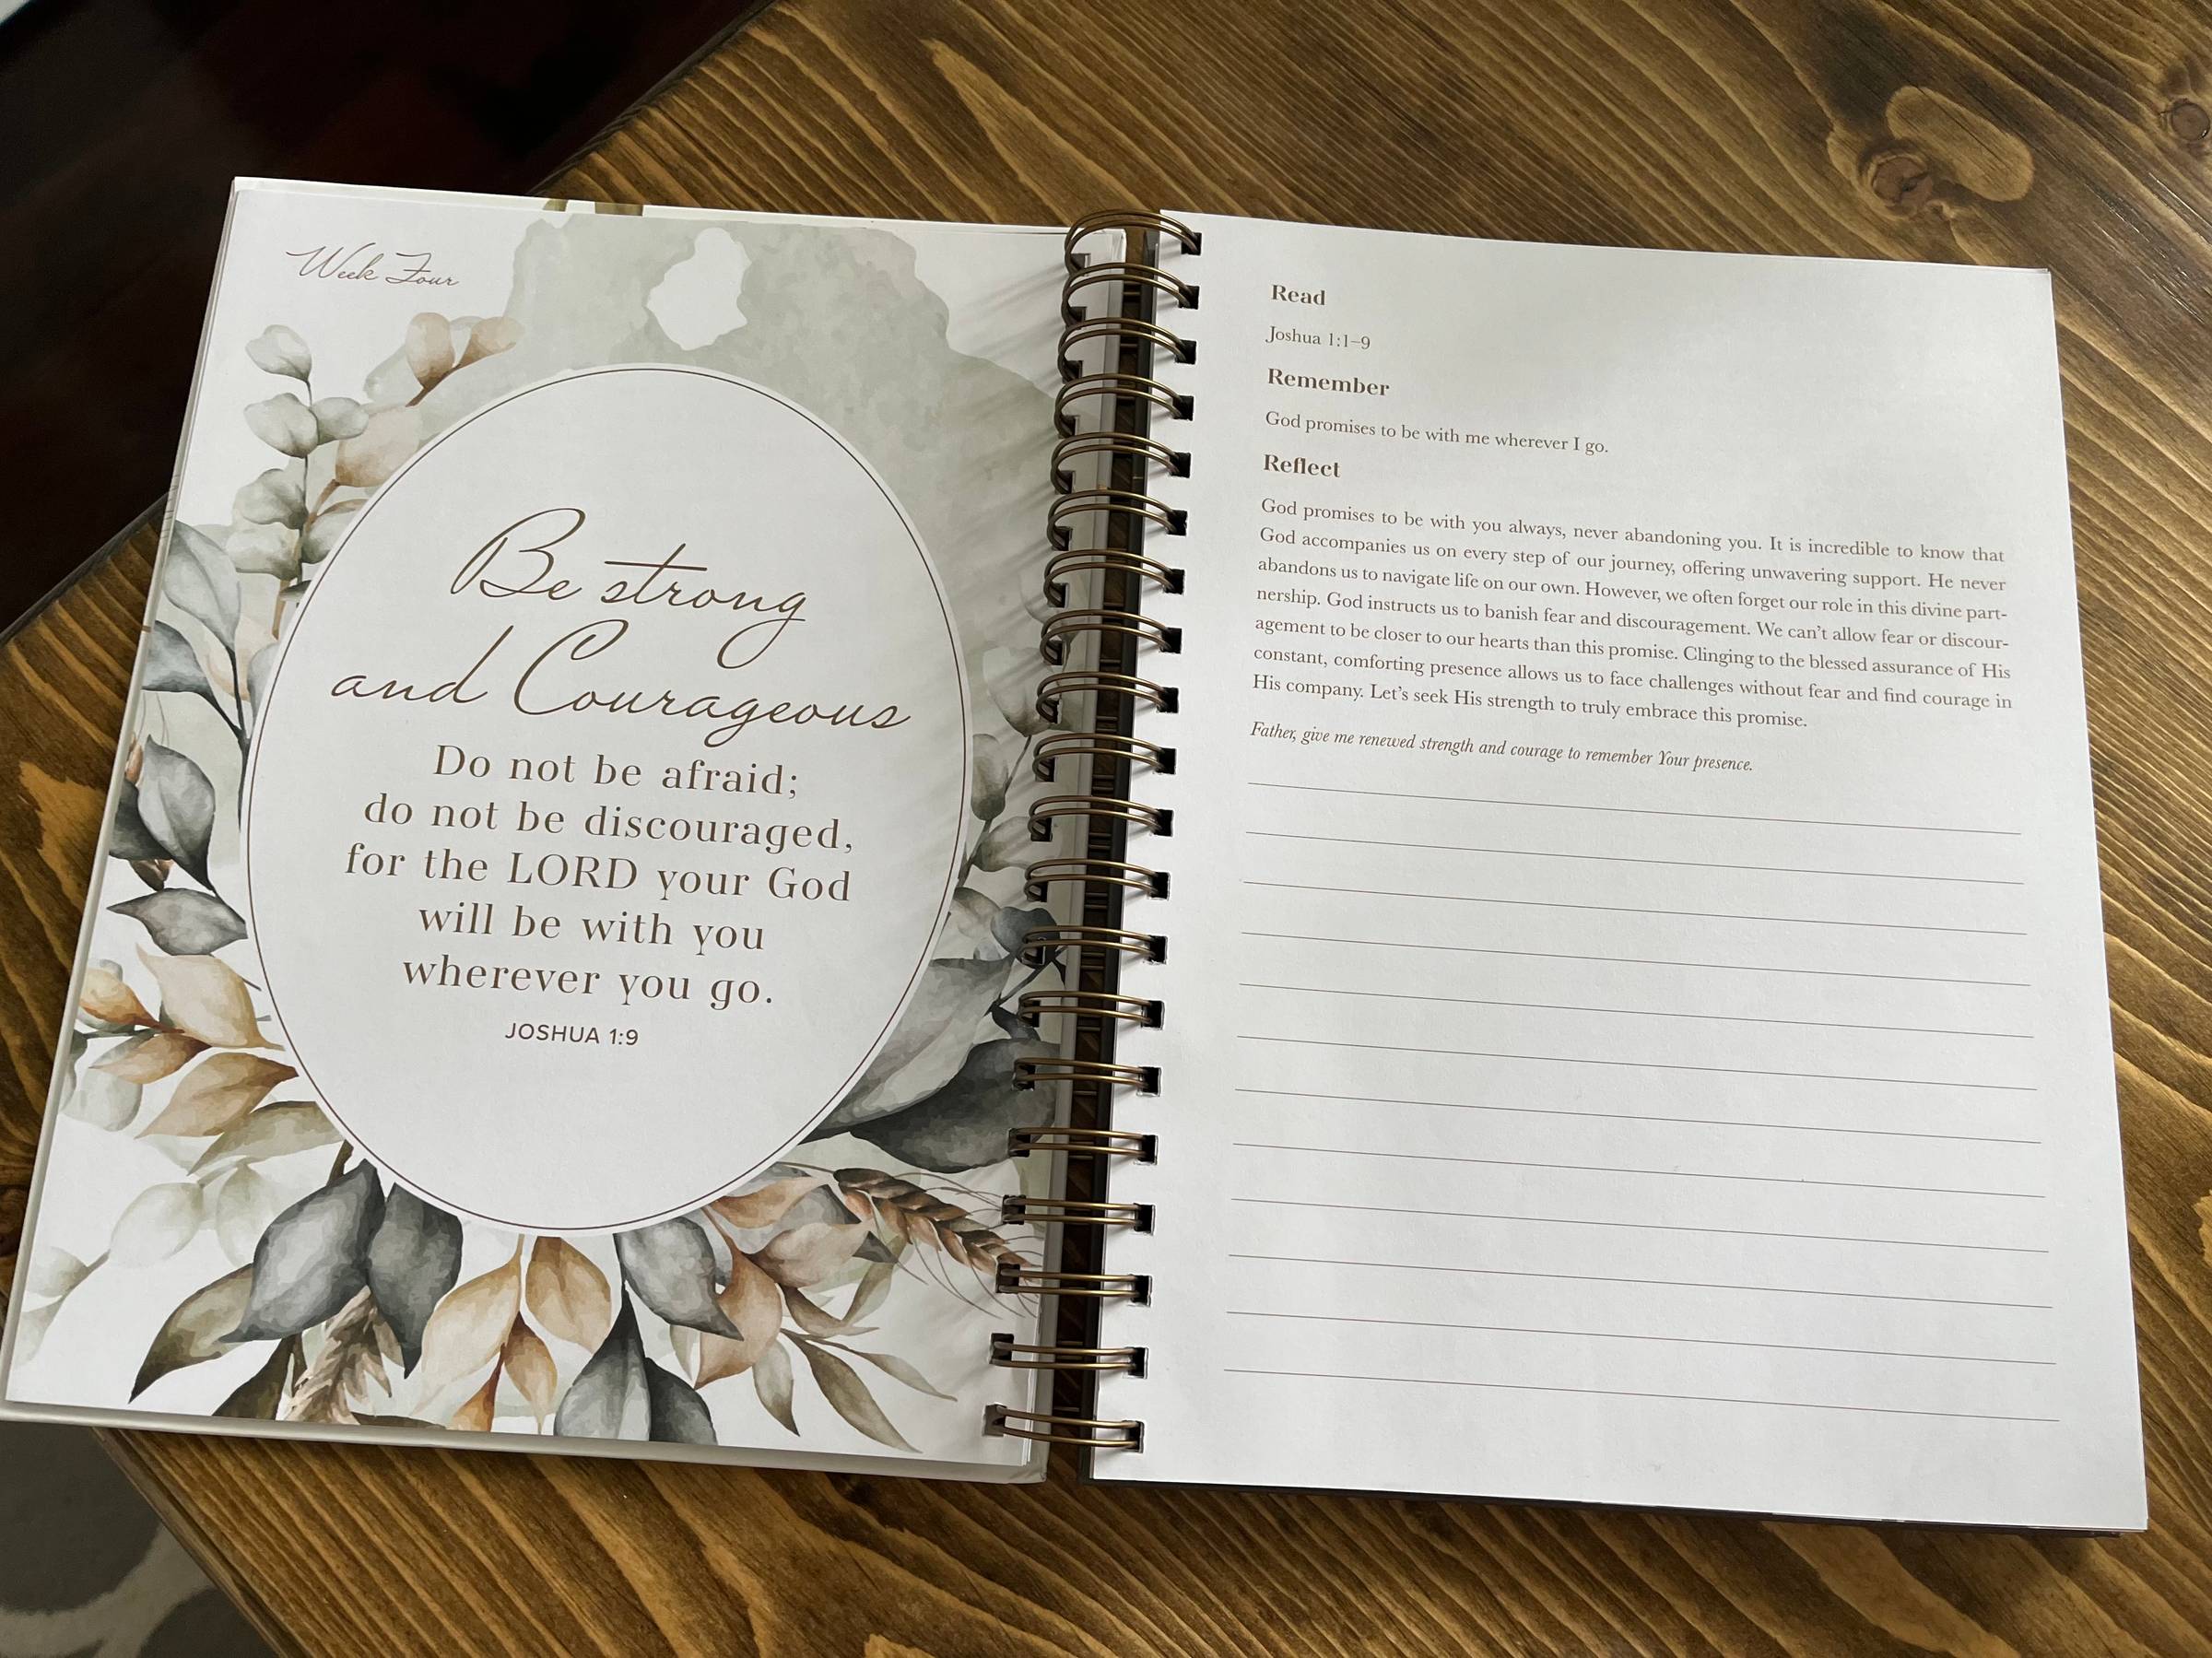 Week Four
Be strong
and Courageous
Do not be afraid;
do not be discouraged,
for the LORD your God
will be with you
wherever you go.
JOSHUA 1:9
Read
Joshua 1:1–9
Remember
God promises to be with me wherever I go.
Reflect
God promises to be with you always, never abandoning you. It is incredible to know that
God accompanies us on every step of our journey, offering unwavering support. He never
abandons us to navigate life on our own. However, we often forget our role in this divine part-
nership. God instructs us to banish fear and discouragement. We can't allow fear or discour-
agement to be closer to our hearts than this promise. Clinging to the blessed assurance of His
constant, comforting presence allows us to face challenges without fear and find courage in
His company. Let's seek His strength to truly embrace this promise.
Father, give me renewed strength and courage to remember Your presence.